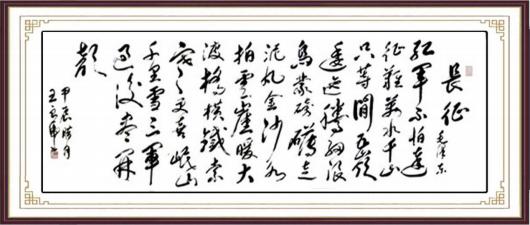 長征
毛泽东
红軍不怕遠
征難萬水千山
只等閒五嶺
逶迤騰细浪
烏蒙磅礴走
泥丸金沙水
拍雲崖暖大
渡橋横鐵索
寒更喜岷山
千里雪三軍
過後盡開
顏
甲辰
月
王